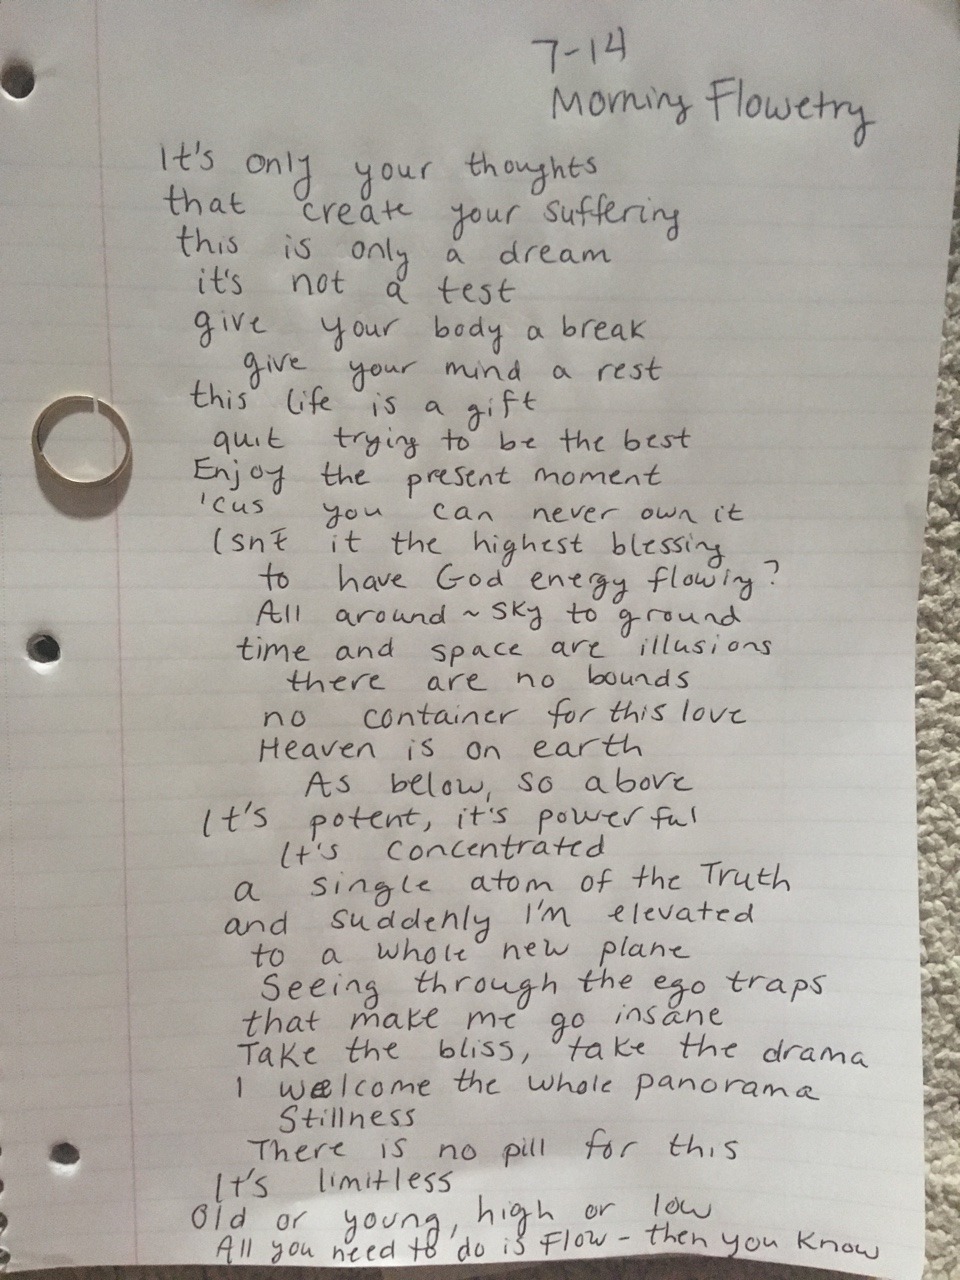 7-14
Morning Flowetry
It's only your thoughts
that create your suffering
this is only a dream
it's not a test
give your body a break
give your mind a rest
this life is a gift
quit trying to be the best
Enjoy the present moment
'cus you can never own it
Isn't it the highest blessing
to have God energy flowing?
All around ~ sky to ground
time and space are illusions
there are no bounds
no container for this love
Heaven is on earth
As below, so above
It's potent, it's powerful
It's concentrated
a single atom of the Truth
and suddenly I'm elevated
to a whole new plane
Seeing through the ego traps
that make me go insane
Take the bliss, take the drama
I welcome the whole panorama
Stillness
There is no pill for this
It's limitless
Old or young, high or low
All you need to do is Flow - then you know